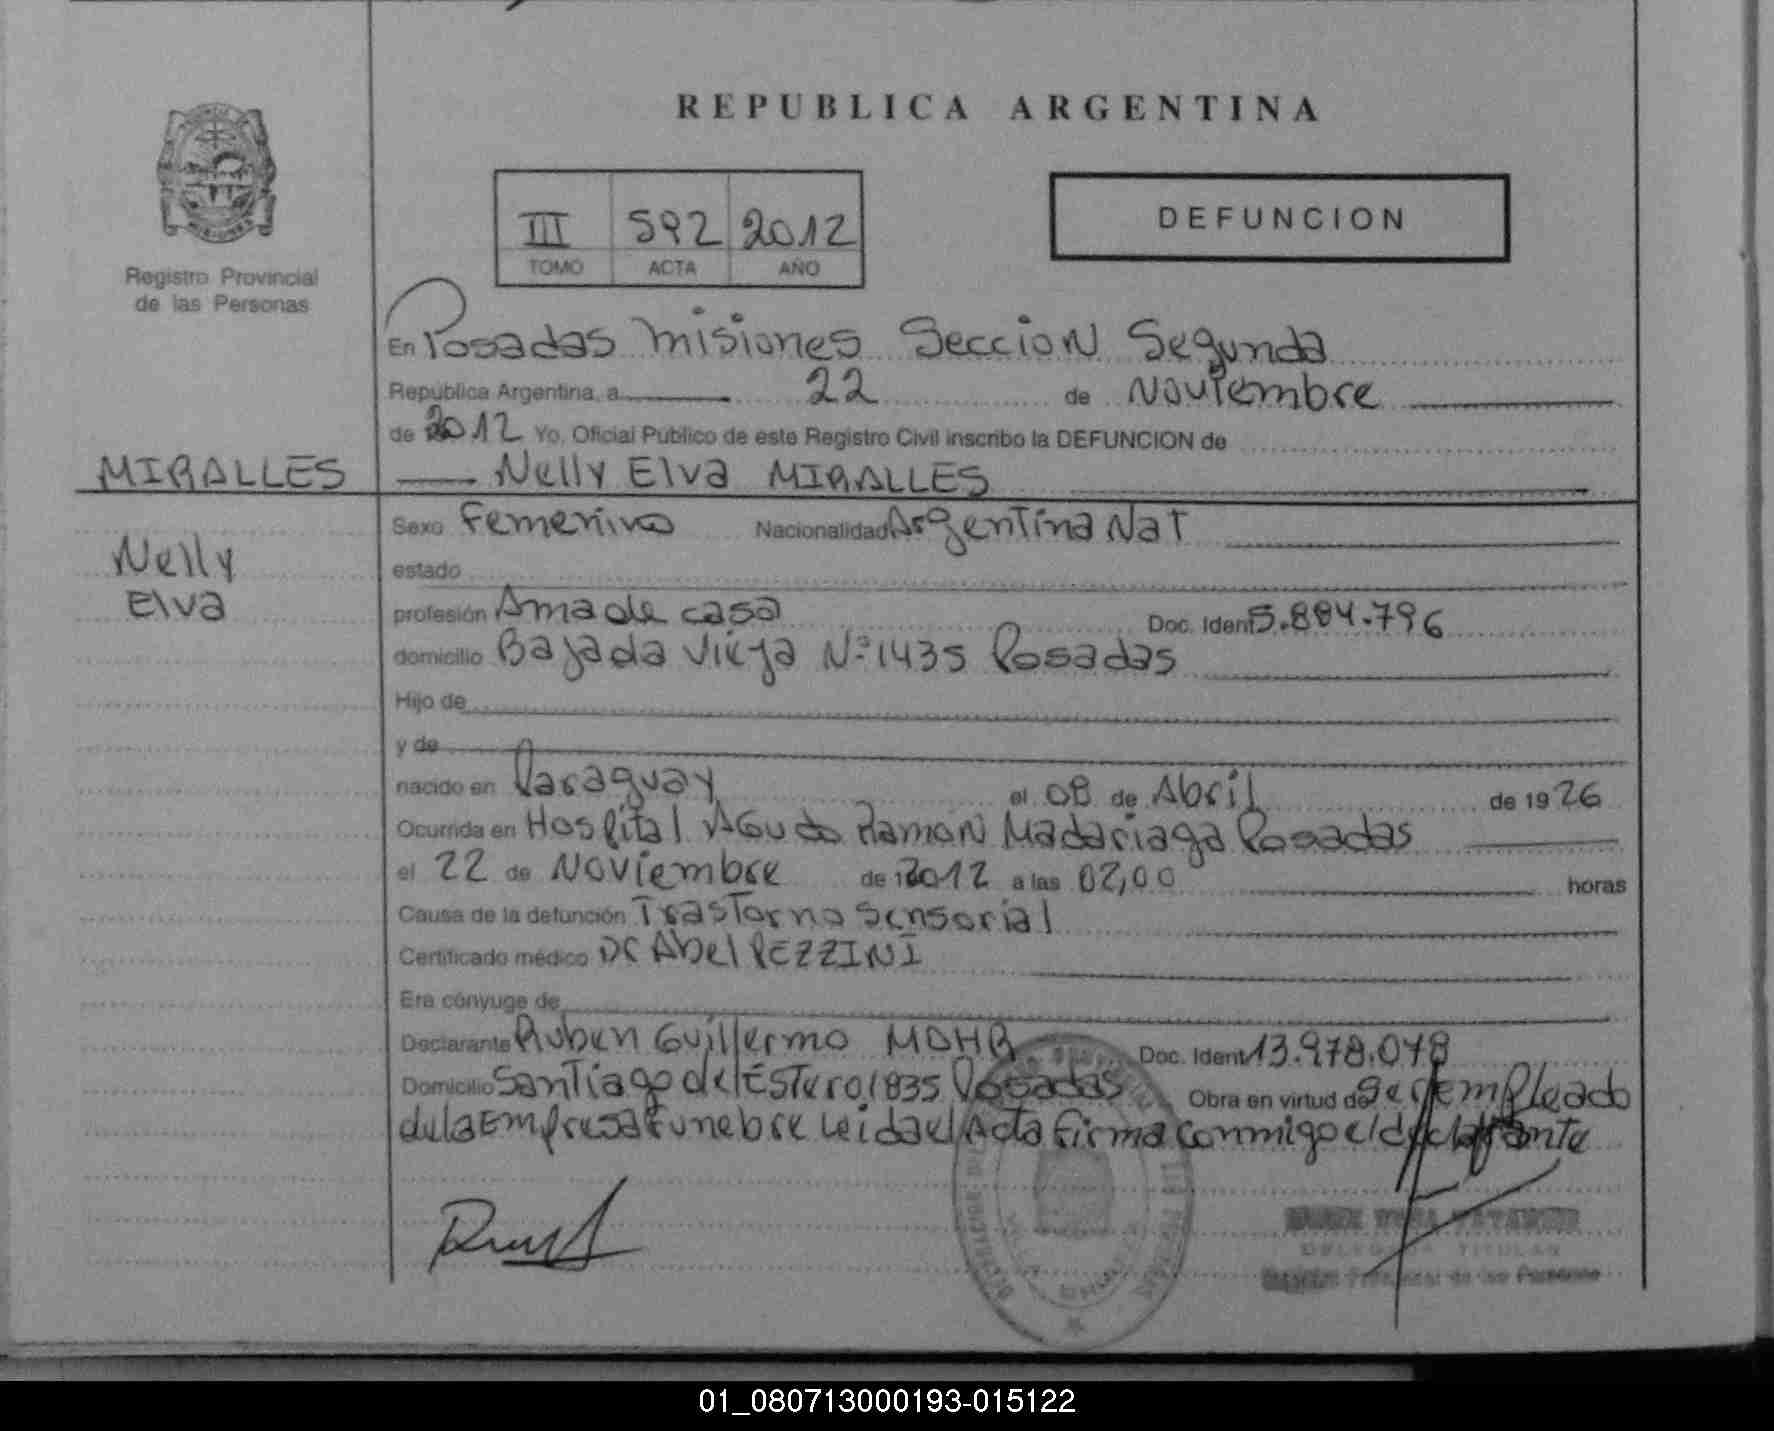 REPUBLICA ARGENTINA
III 592 2012
TOMO ACTA AÑO
DEFUNCION
Registro Provincial
de las Personas
En Posadas Misiones Seccion Segunda
República Argentina, a 22 de Noviembre
de 2012 Yo, Oficial Público de este Registro Civil inscribo la DEFUNCION de
MIRALLES
Nelly Elva MIRALLES
Nelly
Elva
Sexo Femenino Nacionalidad Argentina Nat
estado
profesión Ama de casa Doc. Ident 5.884.796
domicilio Bajada Vieja Nº 1435 Posadas
Hijo de
y de
nacido en Paraguay el 08 de Abril de 1926
Ocurrida en Hospital Agudo Ramon Madariaga Posadas
el 22 de Noviembre de 2012 a las 02,00 horas
Causa de la defunción Trastorno Sensorial
Certificado médico Dr Abel PEZZINI
Era cónyuge de
Declarante Ruben Guillermo Doc. Ident 13.978.048
Domicilio Santiago del Estero 1835 Posadas Obra en virtud de Ser empleado
de la Empresa Funebre Leida el Acta firma conmigo el declarante
TITULAR
de las Personas
01_080713000193-015122